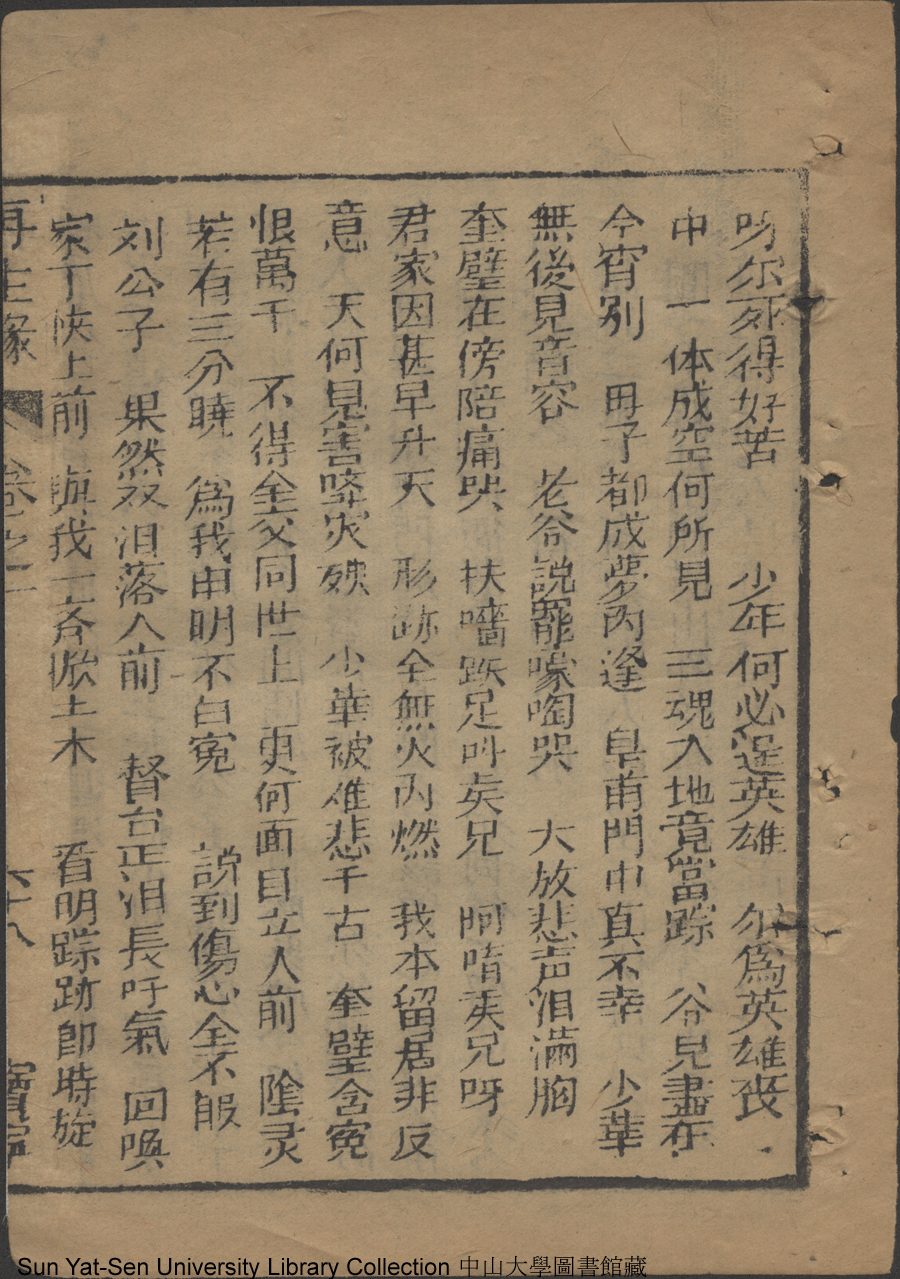 吩尔死得好苦 少年何必逞英雄 尔為英雄喪
中 一体成空何所見 三魂入地竟當踪 谷見盡在
今宵別 毋子都成夢內逢 皇甫門中真不幸 少華
無後見音容 老谷說罷嚎啕哭 大放悲声泪滿胸
奎璧在傍陪痛哭 扶墻跌足叫矣兄 阿唷矣兄呀
君家因甚早升天 形跡全無火內燃 我本留君非反
意 天何見害降灾殃 少華被难悲千古 奎璧含冤
恨萬千 不得全交同世上 更何面目立人前 陰灵
若有三分曉 為我申明不白冤 說到傷心全不服
刘公子 果然双泪落人前 督台正泪長吁氣 回喚
家丁快上前 與我一斉掀土木 看明踪跡即時旋
再生緣 卷之二 六十八 寶寧
Sun Yat-Sen University Library Collection 中山大學圖書館藏